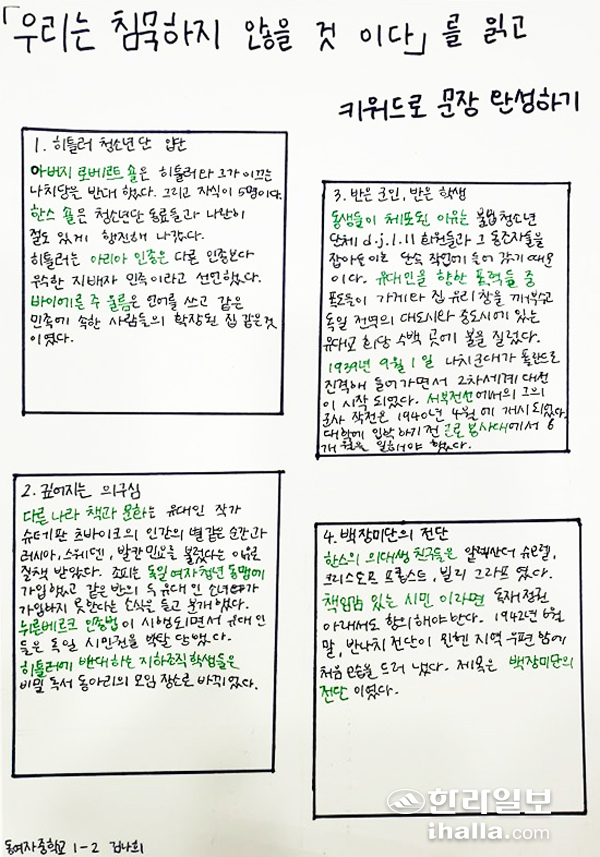 「우리는 침묵하지 않을 것 이다」를 읽고
키워드로 문장 완성하기
1. 히틀러 청소년단 입단
아버지 로베르트 숄은 히틀러와 그가 이끄는
나치당을 반대 했다. 그리고 자식이 5명이다.
한스 숄은 청소년단 동료들과 나란히
절도 있게 행진해 나갔다.
히틀러는 아리아 인종은 다른 인종보다
우수한 지배자 민족이라고 선언했다.
바이에른 주 울름은 언어를 쓰고 같은
민족에 속한 사람들의 확장된 집 같은것
이였다.
2. 깊어지는 의구심
다른 나라 책과 문화는 유대인 작가
슈테판 츠바이크의 인간의 별같은 순간과
러시아, 스웨덴, 발칸 민요를 불렀다는 이유로
질책 받았다. 소피는 독일 여자 청년 동맹에
가입했고 같은 반의 두 유대인 소녀
가입하지 못한다는 소식을 듣고 분개했다.
뉘른베르크 인종법이 시행되면서 유대인
들은 독일 시민권을 박탈 당했다.
히틀러에 반대하는 지하조직 학생들은
비밀 독서 동아리의 모임 장소로 바뀌었다.
3. 반은 군인, 반은 학생
동생들이 체포된 이유는 불법 청소년
단체 d.j.1.11 회원들과 그 동조자들을
잡아들이는 단속 작전에 들어 갔기 때문
이다. 유대인을 향한 폭력들 중
폭도들이 가게와 집 유리창을 깨부수고
독일 전역의 대도시와 중도시에 있는
유대교 회당 수백 곳에 불을 질렀다.
1939년 9월 1일 나치군대가 폴란드로
진격해 들어가면서 2차 세계 대전
이 시작 되었다. 서부전선에서의 그의
군사 작전은 1940년 4월에 개시 되었다.
대학에 입학 하기 전 근로 봉사대에서 6
개월을 일해야 했다.
4. 백장미단의 전단
한스의 의대생 친구들은 알렉산더 슈모렐,
크리스토프 프롭스트, 빌리 그라프 였다.
책임감 있는 시민 이라면 독재정권
아래서도 항의 해야 한다. 1942년 6월
말, 반나치 전단이 뮌헨 지역 우편함에
처음 모습을 드러 냈다. 제목은 백장미단의
전단 이였다.
동여자중학교 1-2 김나희
한라일보
ihalla.com